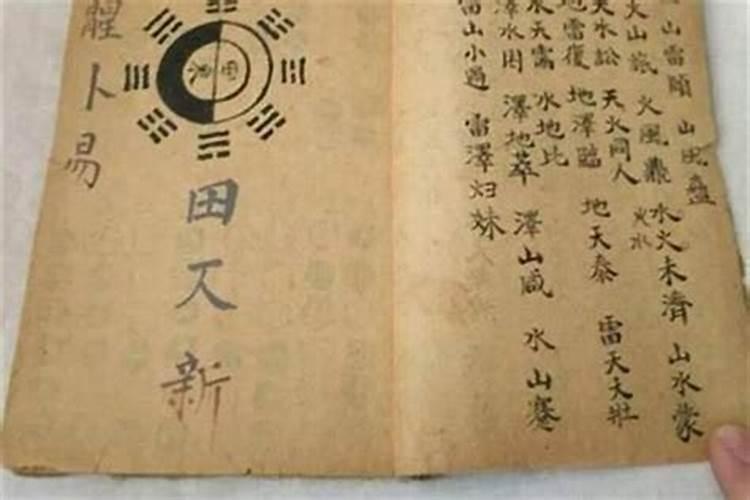 山雷頤
山風蠱
火山旅
火風鼎
水火未濟
火水
山水蒙
天水訟
天火同人
地雷復
地澤臨
地天泰
雷天天壯
水天需
水地比
澤水困
澤地萃
澤山咸
水山蹇
雷山小過
雷澤归妹
田
新
卜易